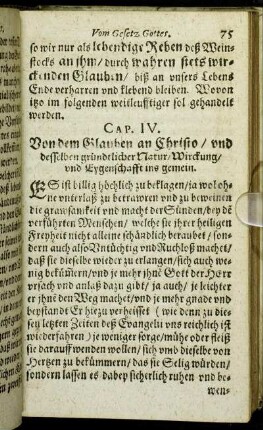 Vom Gesetz Gottes. 75
so wir nur als lebendige Reben deß Wein-
stocks an jhm/ durch wahren stets wir-
ckenden Glauben/ biß an unsers Lebens
Ende verharren vnd klebend bleiben. Wovon
itzo im folgenden weitleufftiger sol gehandelt
werden.
CAP. IV.
Von dem Glauben an Christo/ vnd
desselben gründelicher Natur/ Wirckung/
und Eygenschafft ins gemein.
ES ist billig höchlich zu beklagen/ ja wol oh-
ne unterlaß zu betrawren vnd zu beweinen
die grawsamkeit vnd macht der Sünden/ bey dẽ
verführten Menschen/ welche sie ihrer heiligen
Freyheit nicht alleine schändlich beraubet/ son-
dern auch also Untüchtig vnd Ruchloß machet/
daß sie dieselbe wider zu erlangen/ sich auch we-
nig bekümern/ und je mehr jhnẽ Gott der Herr
vrsach und anlaß dazu gibt/ ja auch/ je leichter
er jhnẽ den Weg machet/ vnd je mehr gnade vnd
beystandt Er hiezu verheisset (wie denn zu die-
sen letzten Zeiten deß Evangelii uns reichlich ist
wiederfahren) je weniger sorge/ mühe oder fleiß
sie darauff wenden wollen/ sich vmb dieselbe von
Hertzen zu bekümmern/ das sie Selig würden/
sondern lassen es dabey sicherlich ruhen vnd be-
wen-